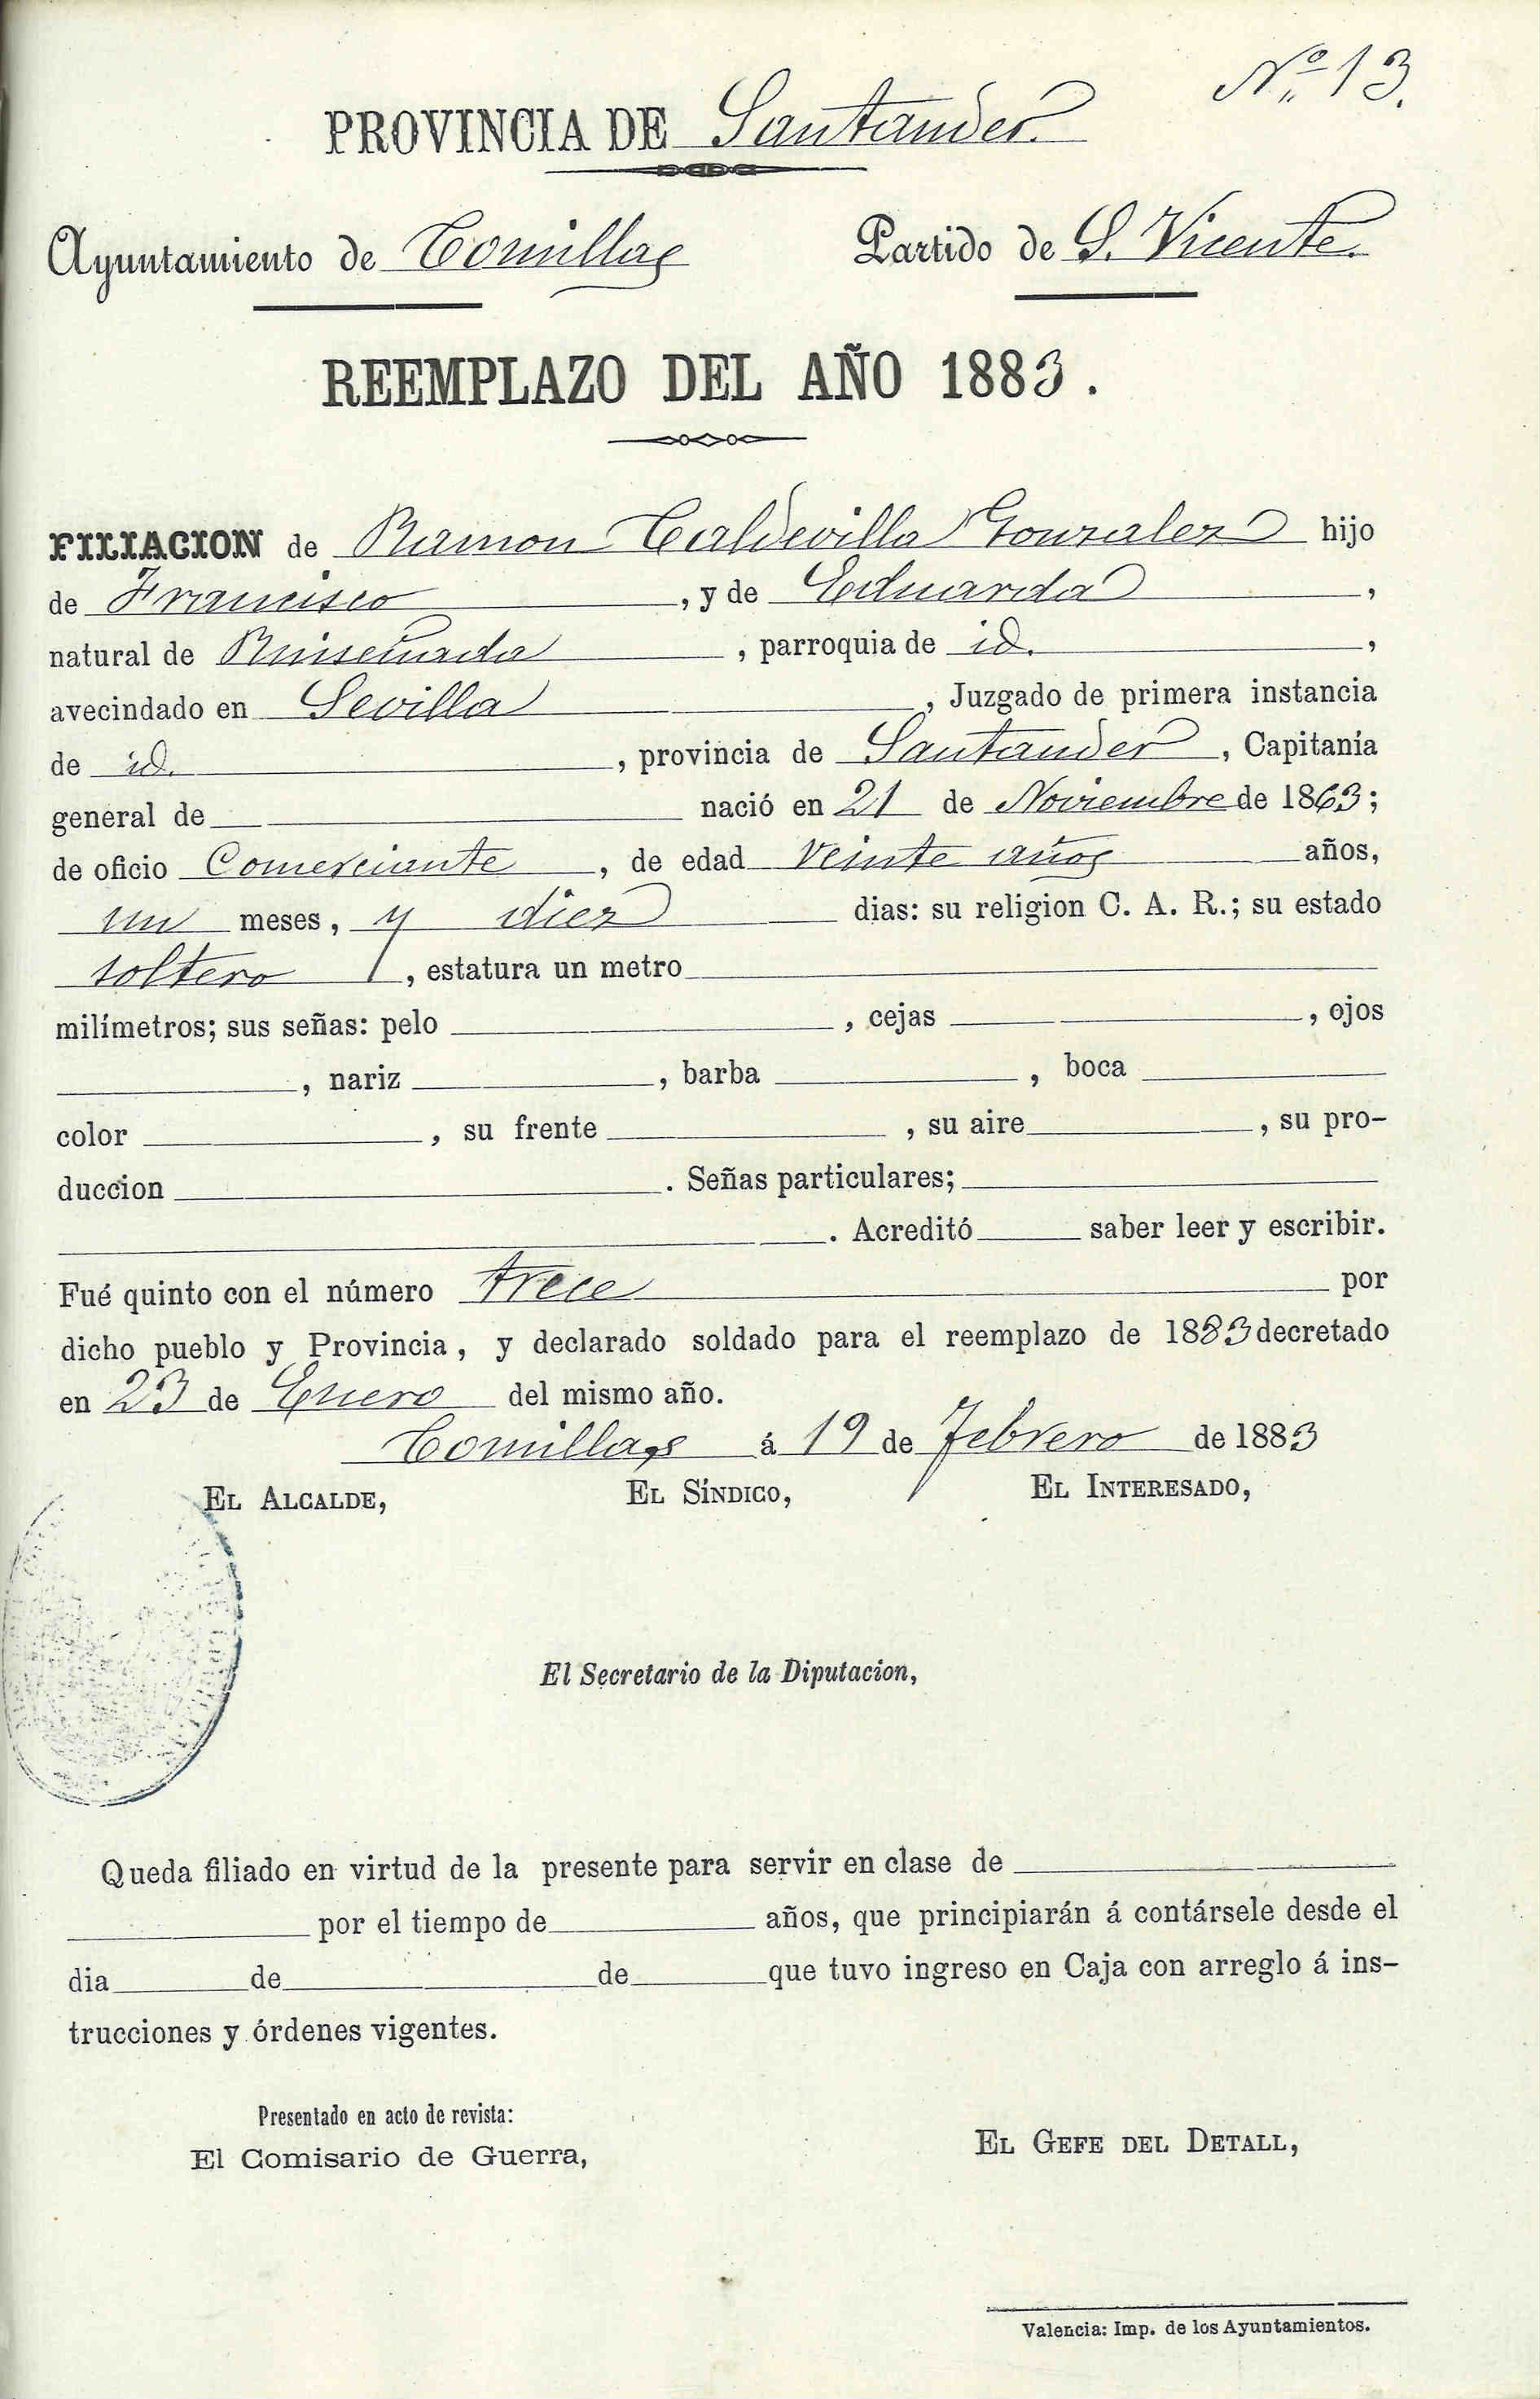 Nº 13.
PROVINCIA DE Santander.
Ayuntamiento de Comillas Partido de S. Vicente.
REEMPLAZO DEL AÑO 1883.
FILIACION de Ramon Caldevilla Gonzalez hijo
de Francisco, y de Eduarda,
natural de Ruiseñada, parroquia de id.,
avecindado en Sevilla, Juzgado de primera instancia
de id., provincia de Santander, Capitanía
general de nació en 21 de Noviembre de 1863;
de oficio Comerciante, de edad veinte años años,
un meses, y diez dias: su religion C. A. R.; su estado
soltero, estatura un metro
milímetros; sus señas: pelo , cejas , ojos
, nariz , barba , boca
color , su frente , su aire , su pro-
duccion . Señas particulares;
. Acreditó saber leer y escribir.
Fué quinto con el número trece por
dicho pueblo y Provincia, y declarado soldado para el reemplazo de 1883 decretado
en 23 de Enero del mismo año.
Comillas á 19 de Febrero de 1883
EL ALCALDE, EL SÍNDICO, EL INTERESADO,
El Secretario de la Diputacion,
Queda filiado en virtud de la presente para servir en clase de
por el tiempo de años, que principiarán á contársele desde el
dia de de que tuvo ingreso en Caja con arreglo á ins-
trucciones y órdenes vigentes.
Presentado en acto de revista:
El Comisario de Guerra, EL GEFE DEL DETALL,
Valencia: Imp. de los Ayuntamientos.